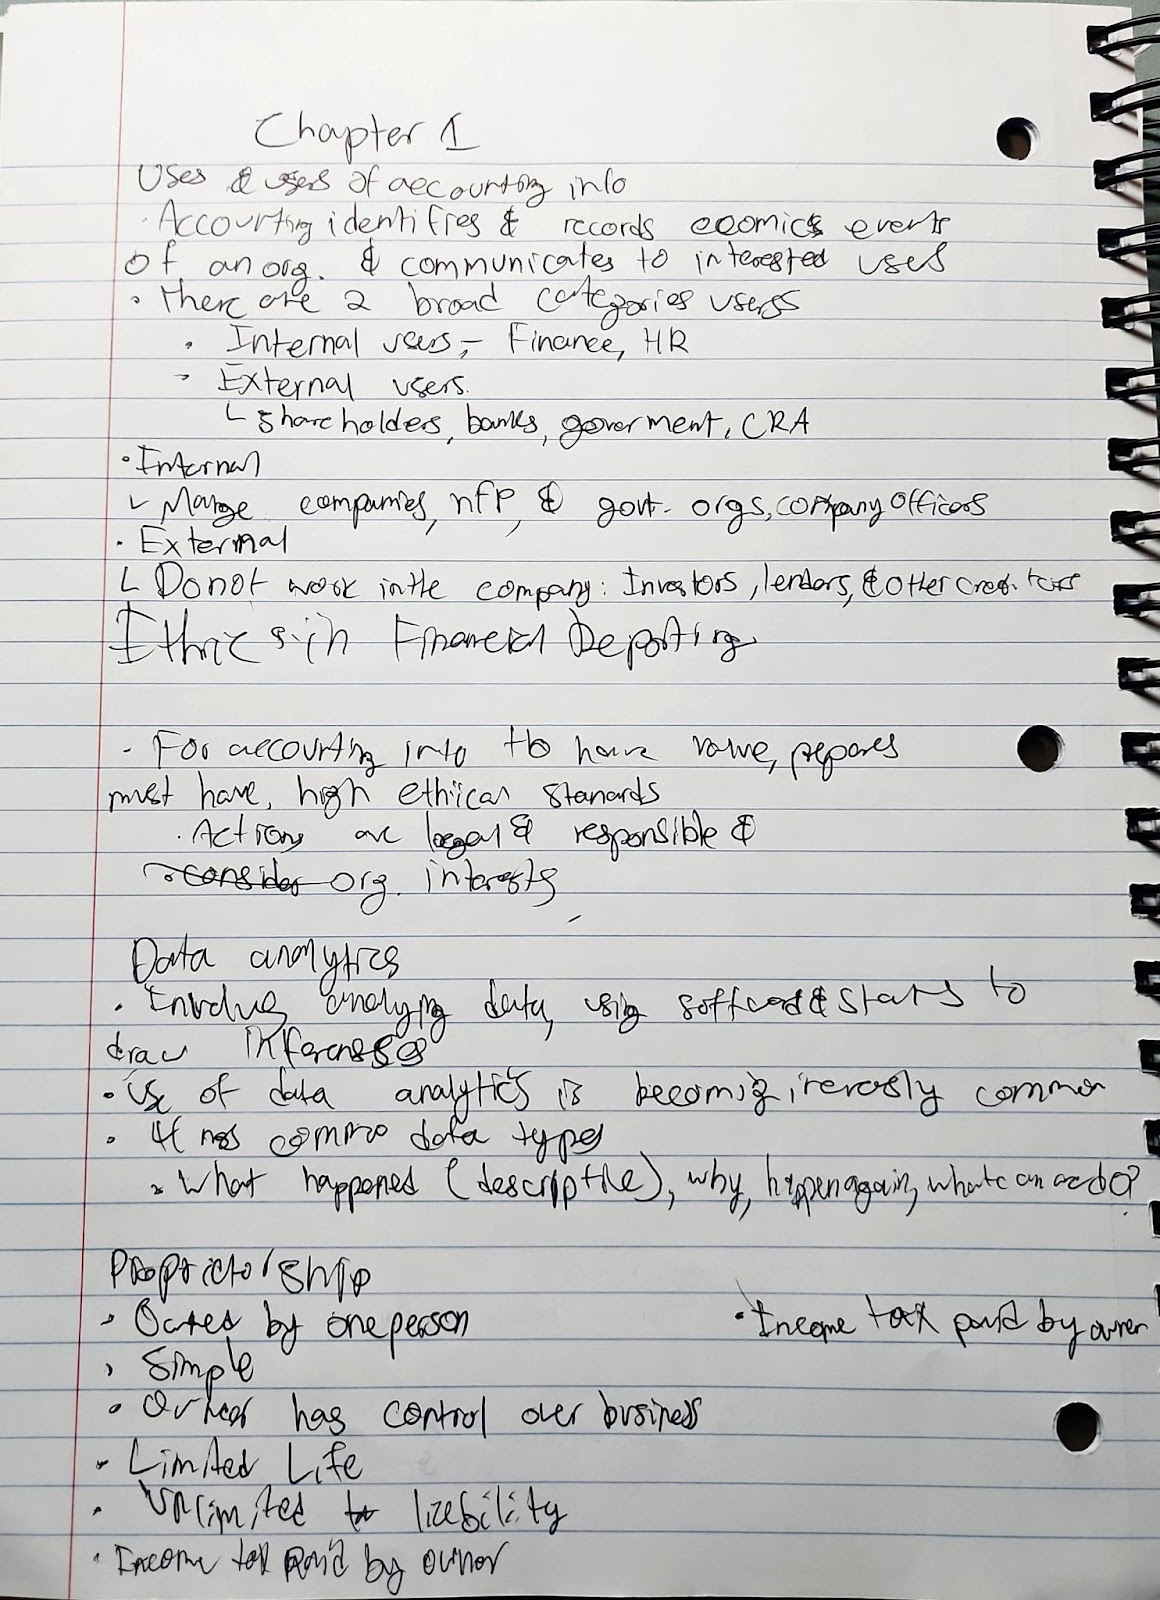 Chapter 1
Uses & users of accounting info
· Accounting identifies & records ecomics events
of an org. & communicates to interested uses
· there are 2 broad categories users
· Internal users - Finance, HR
· External users.
└ shareholders, banks, goverment, CRA
· Internal
└ Mange companies, nfp, & govt. orgs, company officers
· External
└ Do not work in the company: Investors, lenders, & other creditors
Ethics in Financial Reporting
· For accounting info to have value, prepares
must have, high ethical standards
· Actions are legal & responsible &
consider org. interests
Data analytics
· Involves analyzing data, using software & stats to
draw inferenses
· Use of data analytics is becoming common
· 4 common data types
· What happened (descriptive), why, happen again, what can we do?
Proprietorship
· Owned by one person
· Income tax paid by owner
· Simple
· Owner has control over business
· Limited Life
· Unlimited liebility
· Income tax paid by owner